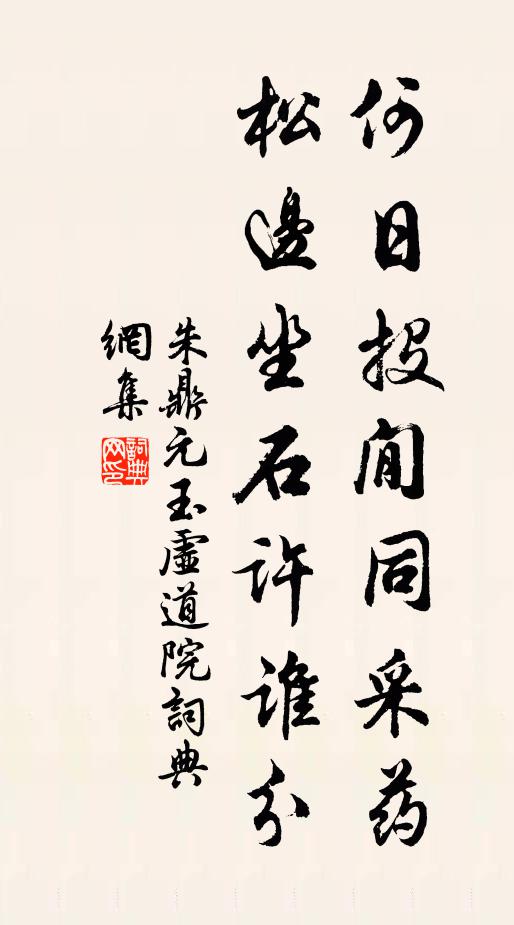 何日投閒同采药
松邊坐石許誰分
朱鼎元玉虛道院詞典
網集
詞典
网印